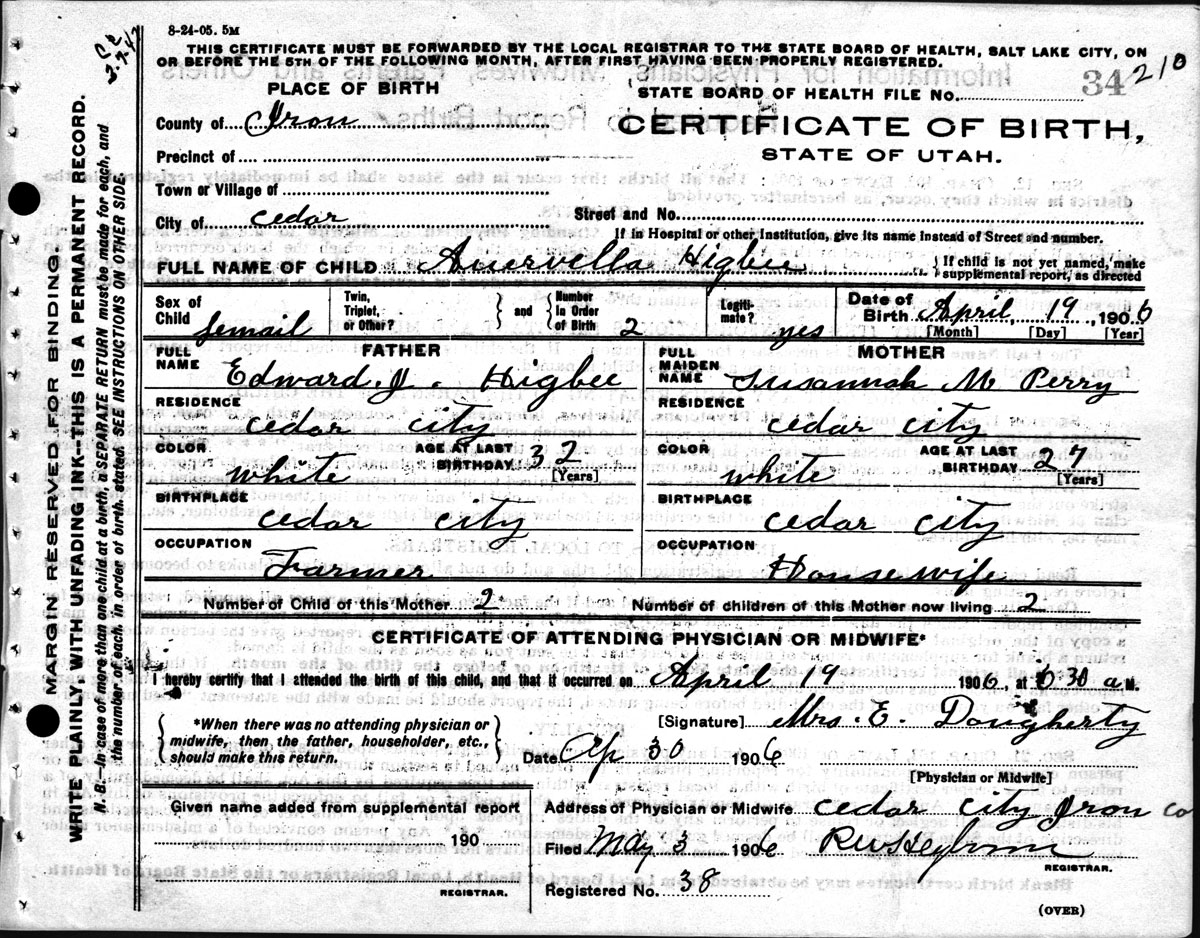 8-24-05. 5M
THIS CERTIFICATE MUST BE FORWARDED BY THE LOCAL REGISTRAR TO THE STATE BOARD OF HEALTH, SALT LAKE CITY, ON
OR BEFORE THE 5TH OF THE FOLLOWING MONTH, AFTER FIRST HAVING BEEN PROPERLY REGISTERED.
PLACE OF BIRTH
STATE BOARD OF HEALTH FILE NO. 34 210
County of Iron
CERTIFICATE OF BIRTH,
STATE OF UTAH.
Precinct of
Town or Village of
City of cedar Street and No.
If in Hospital or other Institution, give its name instead of Street and number.
FULL NAME OF CHILD Higbee { If child is not yet named, make
supplemental report, as directed
Sex of Child femail
Twin, Triplet, or Other? } and { Number In Order of Birth 2
Legitimate? yes
Date of Birth April, 19, 1906
[Month] [Day] [Year]
FATHER
FULL NAME Edward J. Higbee
RESIDENCE
cedar city
COLOR white AGE AT LAST BIRTHDAY 32 [Years]
BIRTHPLACE
cedar city
OCCUPATION
Farmer
MOTHER
FULL MAIDEN NAME Susannah M Perry
RESIDENCE
cedar city
COLOR white AGE AT LAST BIRTHDAY 27 [Years]
BIRTHPLACE
cedar city
OCCUPATION
Housewife
Number of Child of this Mother 2 Number of children of this Mother now living 2
CERTIFICATE OF ATTENDING PHYSICIAN OR MIDWIFE*
I hereby certify that I attended the birth of this child, and that it occurred on April 19 1906, at 30 a M.
{ *When there was no attending physician or
midwife, then the father, householder, etc.,
should make this return. }
[Signature] Mrs. E. Dougherty
Date Ap 30 1906
[Physician or Midwife]
Given name added from supplemental report
190
REGISTRAR.
Address of Physician or Midwife cedar city Iron co
Filed May 3 1906
REGISTRAR.
Registered No. 38
(OVER)
MARGIN RESERVED FOR BINDING.
WRITE PLAINLY, WITH UNFADING INK—THIS IS A PERMANENT RECORD.
N. B.—In case of more than one child at a birth, a SEPARATE RETURN must be made for each, and
the number of each, in order of birth, stated. SEE INSTRUCTIONS ON OTHER SIDE.